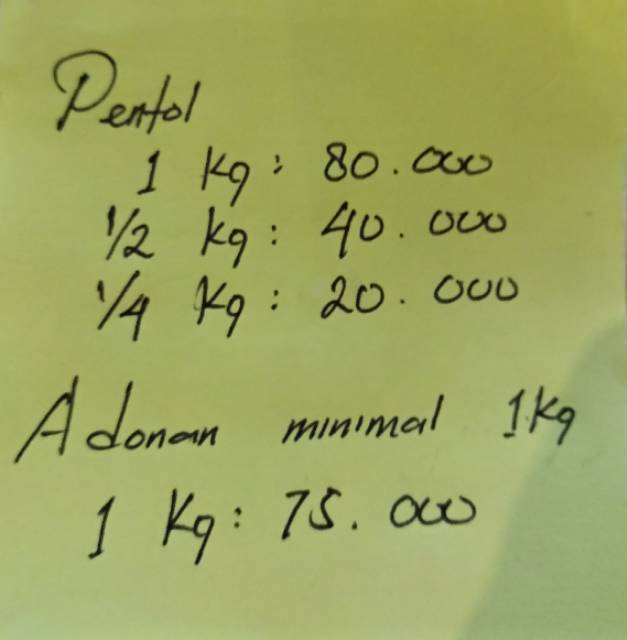 Pentol
1 Kg : 80.000
1/2 Kg : 40.000
1/4 Kg : 20.000
Adonan minimal 1 Kg
1 Kg : 75.000